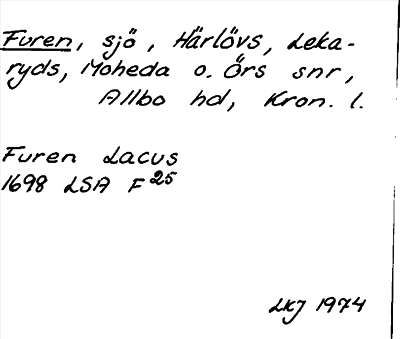 Furen, sjö, Härlövs, Leka-
ryds, Moheda o. Örs snr,
Allbo hd, Kron. l.
Furen Lacus
1698 LSA F 25
LKJ 1974